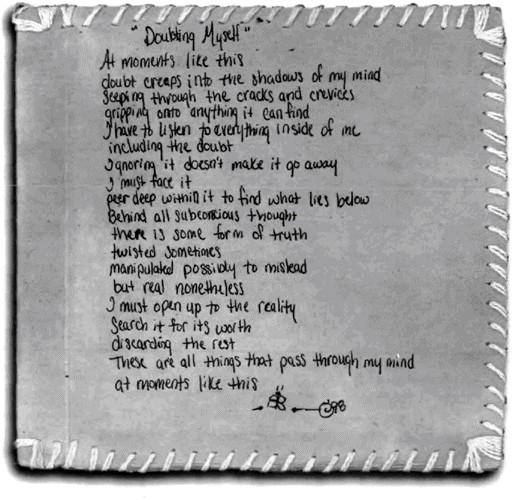 "Doubting Myself"
At moments like this
doubt creeps into the shadows of my mind
Seeping through the cracks and crevices
gripping onto anything it can find
I have to listen to everything inside of me
including the doubt
Ignoring it doesn't make it go away
I must face it
peer deep within it to find what lies below
Behind all subconsious thought
there is some form of truth
twisted sometimes
manipulated possibly to mislead
but real nonetheless
I must open up to the reality
Search it for its worth
discarding the rest
These are all things that pass through my mind
at moments like this